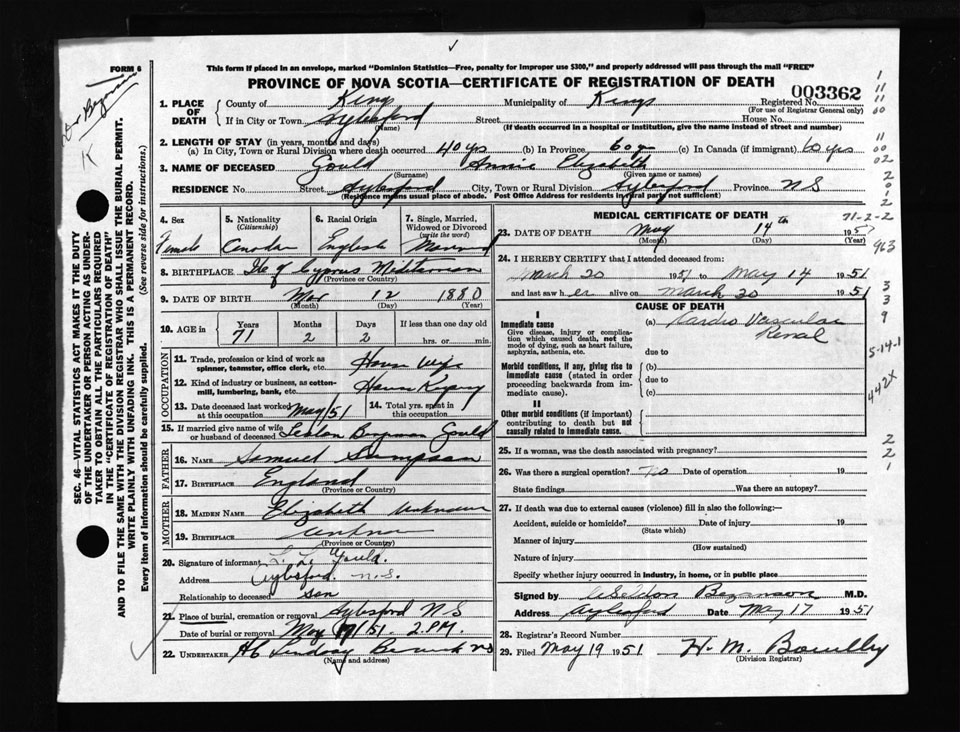 FORM 6
This form if placed in an envelope, marked "Dominion Statistics—Free, penalty for improper use $300," and properly addressed will pass through the mail "FREE"
PROVINCE OF NOVA SCOTIA—CERTIFICATE OF REGISTRATION OF DEATH
003362
1. PLACE OF DEATH
County of Kings Municipality of Kings Registered No.
(For use of Registrar General only)
If in City or Town Aylesford Street House No.
(Name) (If death occurred in a hospital or institution, give the name instead of street and number)
2. LENGTH OF STAY (in years, months and days)
(a) In City, Town or Rural Division where death occurred 40 ys (b) In Province 60 ys (c) In Canada (if immigrant) 60 yrs
3. NAME OF DECEASED Gould Annie Elizabeth
(Surname) (Given name or names)
RESIDENCE No. Street Aylesford City, Town or Rural Division Aylesford Province N S
(Residence means usual place of abode. Post Office Address for residents in rural parts not sufficient)
4. Sex
Female
5. Nationality
(Citizenship)
Canadian
6. Racial Origin
English
7. Single, Married, Widowed or Divorced
(write the word)
Married
8. BIRTHPLACE Ile of Cyprus
(Province or Country)
9. DATE OF BIRTH Mar 12 1880
(Month) (Day) (Year)
10. AGE in Years Months Days If less than one day old
71 2 2 hrs. or min.
OCCUPATION
11. Trade, profession or kind of work as spinner, teamster, office clerk, etc. House Wife
12. Kind of industry or business, as cotton-mill, lumbering, bank, etc. House
13. Date deceased last worked at this occupation May/51
14. Total yrs. spent in this occupation
15. If married give name of wife or husband of deceased Gould
FATHER
16. NAME Samuel Sampson
17. BIRTHPLACE England
(Province or Country)
MOTHER
18. MAIDEN NAME Elizabeth Unknown
19. BIRTHPLACE
(Province or Country)
20. Signature of informant Gould.
Address Aylesford. N.S.
Relationship to deceased son
21. Place of burial, cremation or removal Aylesford N S
Date of burial or removal May 17/51. 2 P.M.
22. UNDERTAKER Lindsay Berwick NS
(Name and address)
MEDICAL CERTIFICATE OF DEATH
23. DATE OF DEATH May 14th 1951
(Month) (Day) (Year)
24. I HEREBY CERTIFY that I attended deceased from:
March 20 1951 to May 14 1951
and last saw her alive on March 20 1951
CAUSE OF DEATH
I
Immediate cause
Give disease, injury or complication which caused death, not the mode of dying, such as heart failure, asphyxia, asthenia, etc.
(a) Cardio Vascular
Renal
due to
Morbid conditions, if any, giving rise to immediate cause (stated in order proceeding backwards from immediate cause).
(b)
due to
(c)
II
Other morbid conditions (if important) contributing to death but not causally related to immediate cause.
25. If a woman, was the death associated with pregnancy?
26. Was there a surgical operation? No Date of operation 19
State findings Was there an autopsy?
27. If death was due to external causes (violence) fill in also the following:—
Accident, suicide or homicide? Date of injury 19
(State which)
Manner of injury
(How sustained)
Nature of injury
Specify whether injury occurred in industry, in home, or in public place
Signed by Bezanson M.D.
Address Aylesford Date May 17 1951
28. Registrar's Record Number
29. Filed May 19 1951
(Division Registrar)
SEC. 46—VITAL STATISTICS ACT MAKES IT THE DUTY OF THE UNDERTAKER OR PERSON ACTING AS UNDERTAKER TO OBTAIN ALL THE PARTICULARS REQUIRED IN THE "CERTIFICATE OF REGISTRATION OF DEATH" AND TO FILE THE SAME WITH THE DIVISION REGISTRAR WHO SHALL ISSUE THE BURIAL PERMIT.
WRITE PLAINLY WITH UNFADING INK. THIS IS A PERMANENT RECORD.
Every item of Information should be carefully supplied. (See reverse side for instructions.)
Dr Bezanson
K
71-2-2
963
3
3
9
5-14-1
442X
2
2
1